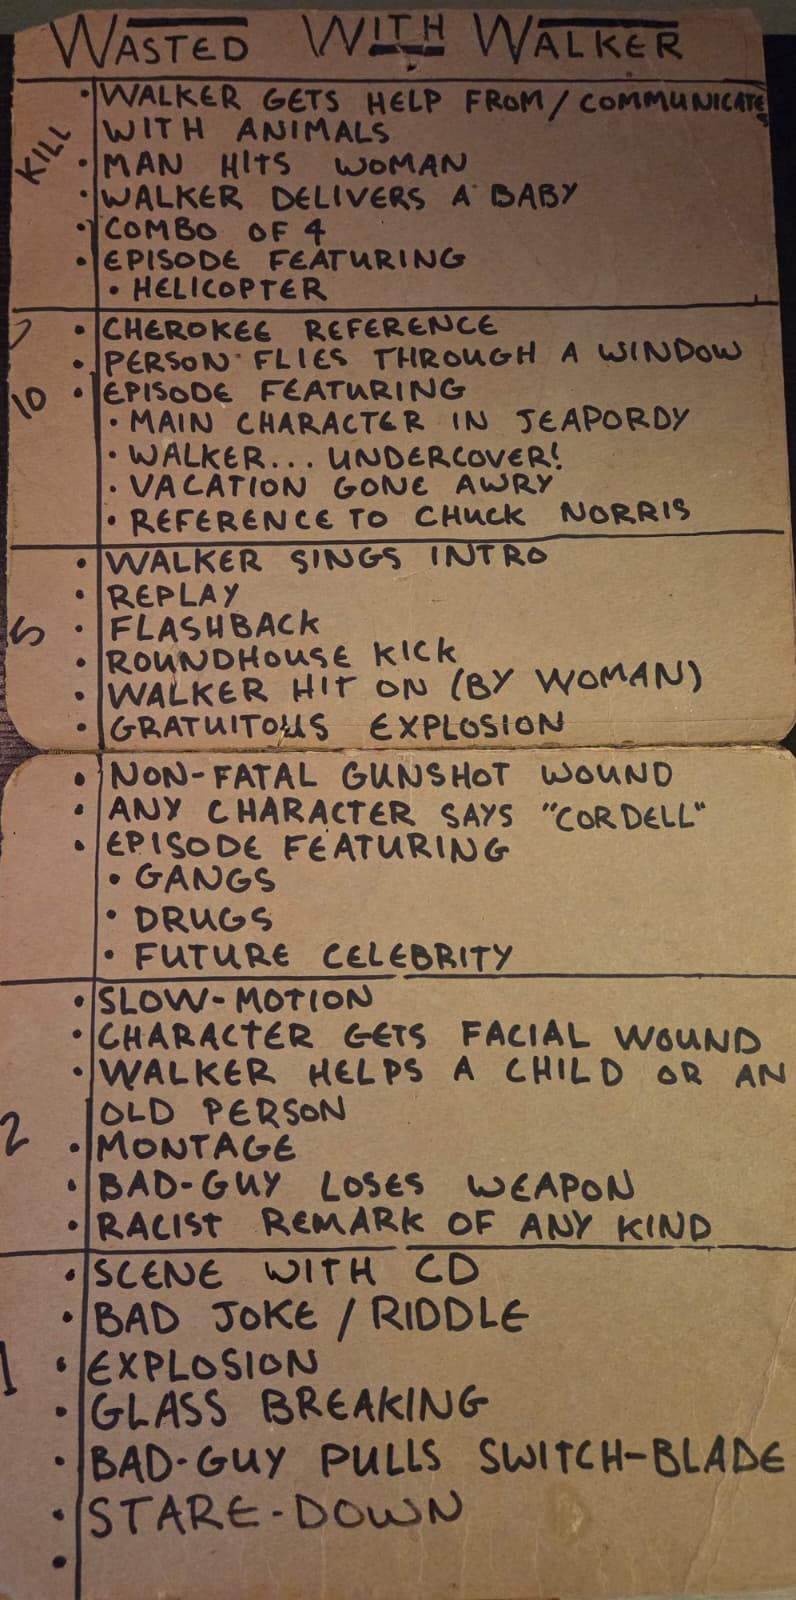 WASTED WITH WALKER
KILL
• WALKER GETS HELP FROM / COMMUNICATES
WITH ANIMALS
• MAN HITS WOMAN
• WALKER DELIVERS A BABY
• COMBO OF 4
• EPISODE FEATURING
• HELICOPTER
10
• CHEROKEE REFERENCE
• PERSON FLIES THROUGH A WINDOW
• EPISODE FEATURING
• MAIN CHARACTER IN JEAPORDY
• WALKER... UNDERCOVER!
• VACATION GONE AWRY
• REFERENCE TO CHUCK NORRIS
5
• WALKER SINGS INTRO
• REPLAY
• FLASHBACK
• ROUNDHOUSE KICK
• WALKER HIT ON (BY WOMAN)
• GRATUITOUS EXPLOSION
• NON-FATAL GUNSHOT WOUND
• ANY CHARACTER SAYS "CORDELL"
• EPISODE FEATURING
• GANGS
• DRUGS
• FUTURE CELEBRITY
2
• SLOW-MOTION
• CHARACTER GETS FACIAL WOUND
• WALKER HELPS A CHILD OR AN
OLD PERSON
• MONTAGE
• BAD-GUY LOSES WEAPON
• RACIST REMARK OF ANY KIND
1
• SCENE WITH CD
• BAD JOKE / RIDDLE
• EXPLOSION
• GLASS BREAKING
• BAD-GUY PULLS SWITCH-BLADE
• STARE-DOWN
•